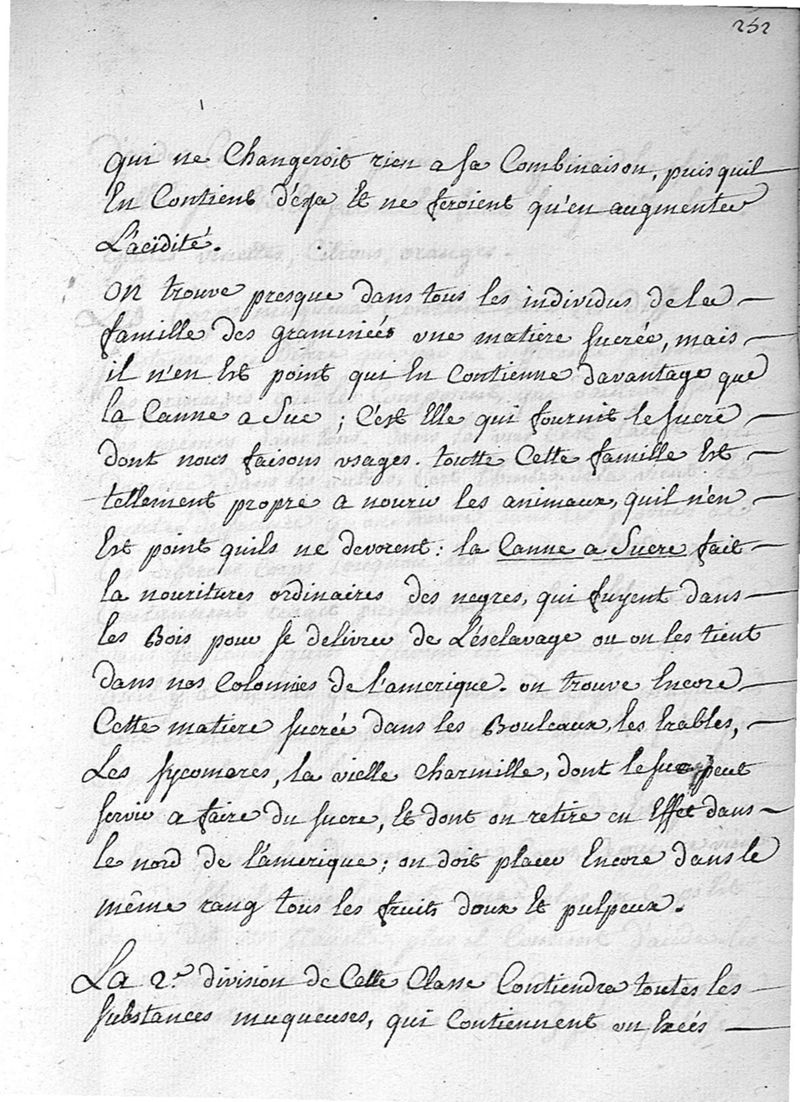 252
qui ne Changeroit rien a sa Combinaison, puis quil
En Contient déja Et ne feroient qu'en augmenter
L'acidité.
ON trouve presque dans tous les individus de la
famille des graminées une matiere sucrée, mais
il n'en Est point qui En Contienne davantage que
la Canne a Suc ; C'est Elle qui fournit le sucre
dont nous faisons usages. toutte Cette famille Est
tellement propre a nourir les animaux, quil n'en
Est point quils ne devorent : la Canne a Sucre fait
la nouritures ordinaires des negres, qui fuyent dans
les Bois pour se delivrer de L'esclavage ou on les tient
dans nos Colonnies de l'amerique. on trouve Encore
Cette matiere sucrée dans les Bouleaux, les Erables,
Les sycomores, la vielle charmille, dont le suc peut
servir a faire du sucre, Et dont on retire en Effet dans
le nord de l'amerique ; on doit placer Encore dans le
même rang tous les fruits doux Et pulpeux.
La 2.e division de Cette Classe Contiendra toutes les
substances muqueuses, qui Contiennent un Excés